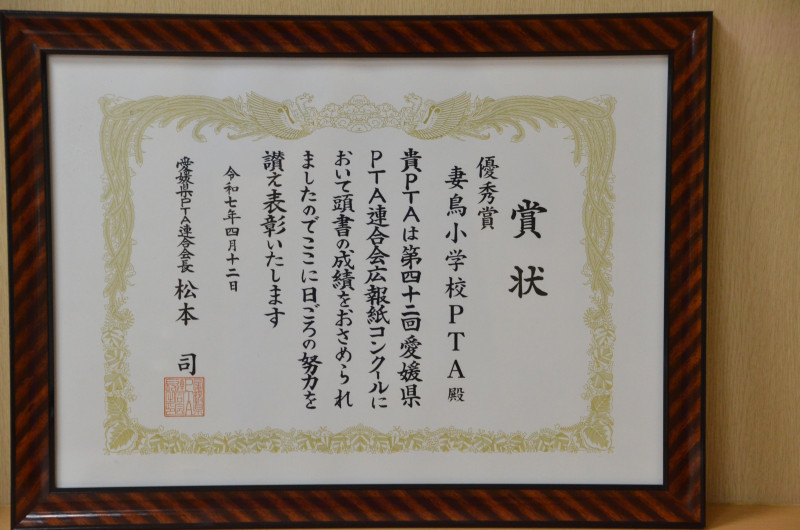 賞状
優秀賞
妻鳥小学校PTA殿
貴PTAは第四十二回愛媛県
PTA連合会広報紙コンクールに
おいて頭書の成績をおさめられ
ましたのでここに日ごろの努力を
讃え表彰いたします
令和七年四月十二日
愛媛県PTA連合会長 松本 司